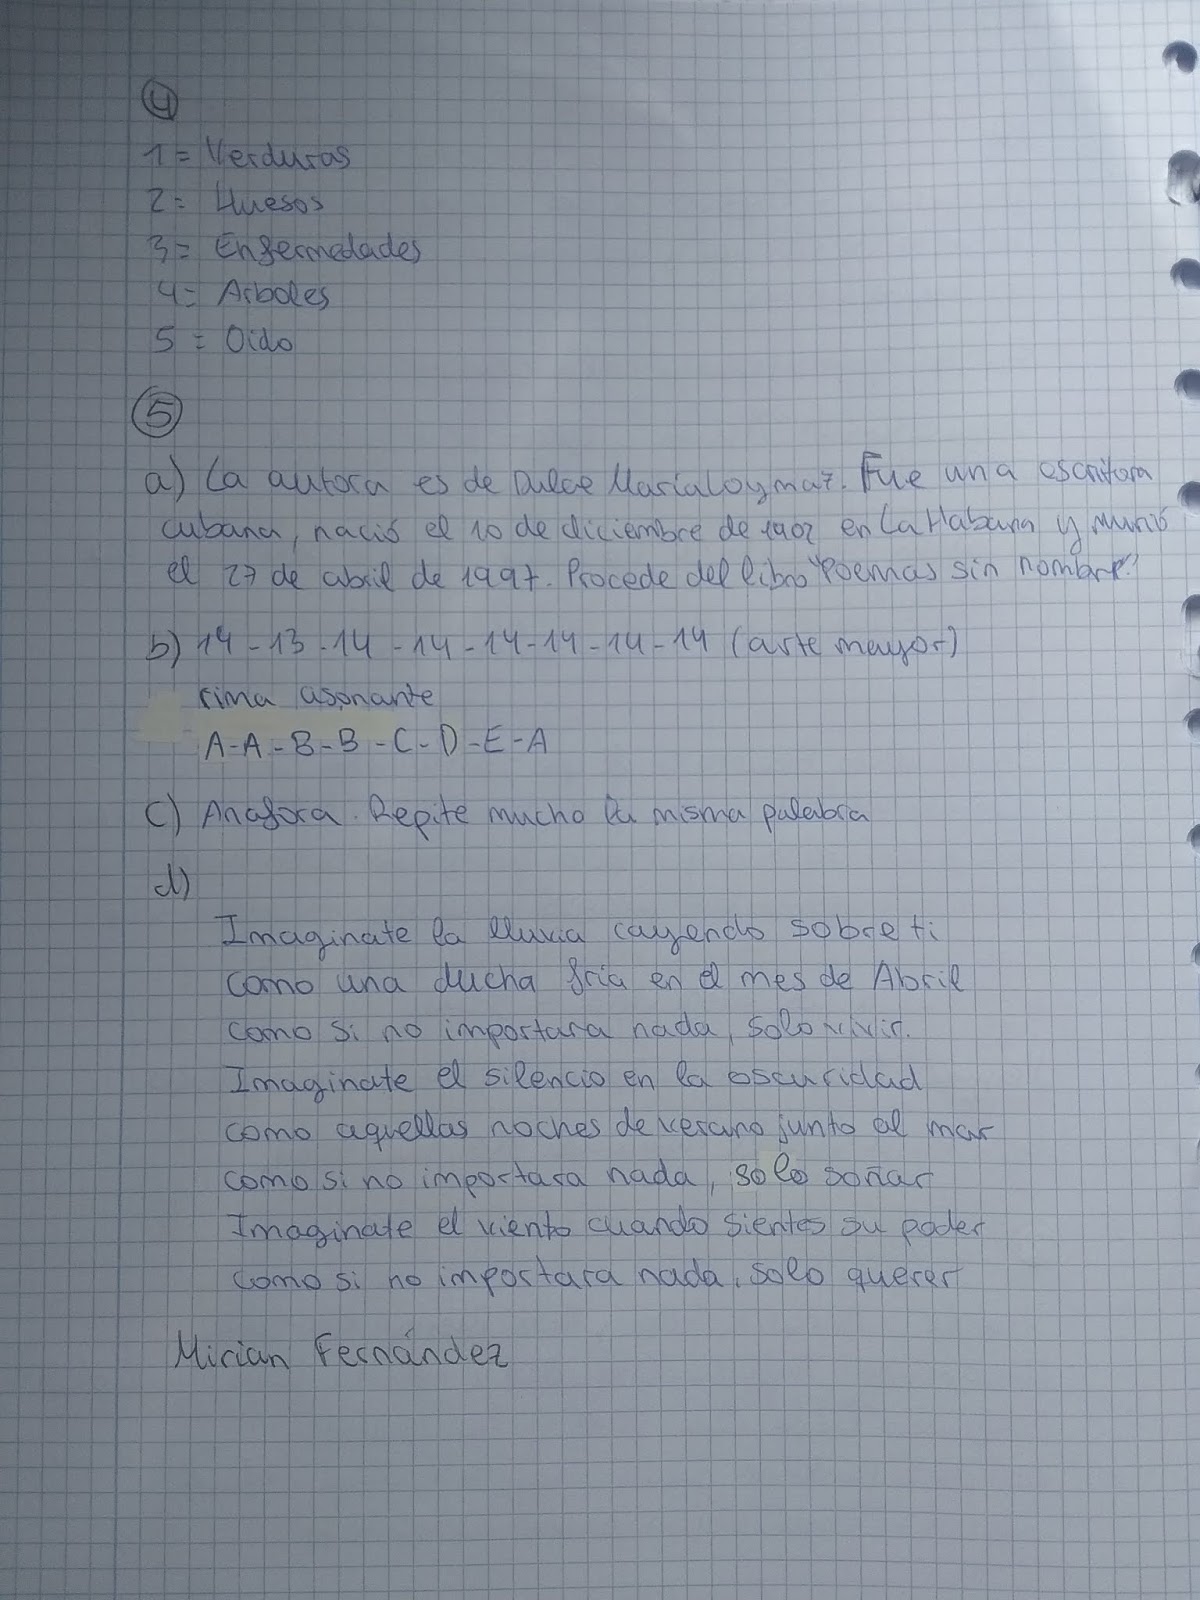 4
1 = Verduras
2 = Huesos
3 = Enfermedades
4 = Arboles
5 = Oido
5
a) La autora es de Dulce María Loymaz. Fue una escritora
cubana, nació el 10 de diciembre de 1902 en La Habana y murió
el 27 de abril de 1997. Procede del libro "Poemas sin nombre".
b) 14 - 13 - 14 - 14 - 14 - 14 - 14 - 14 (arte mayor)
rima asonante
A - A - B - B - C - D - E - A
c) Anafora. Repite mucho la misma palabra
d)
Imaginate la lluvia cayendo sobre ti
como una ducha fría en el mes de Abril
como si no importara nada, solo vivir.
Imaginate el silencio en la oscuridad
como aquellas noches de verano junto al mar
como si no importara nada, solo soñar
Imaginate el viento cuando sientes su poder
como si no importara nada, solo querer
Mirian Fernández